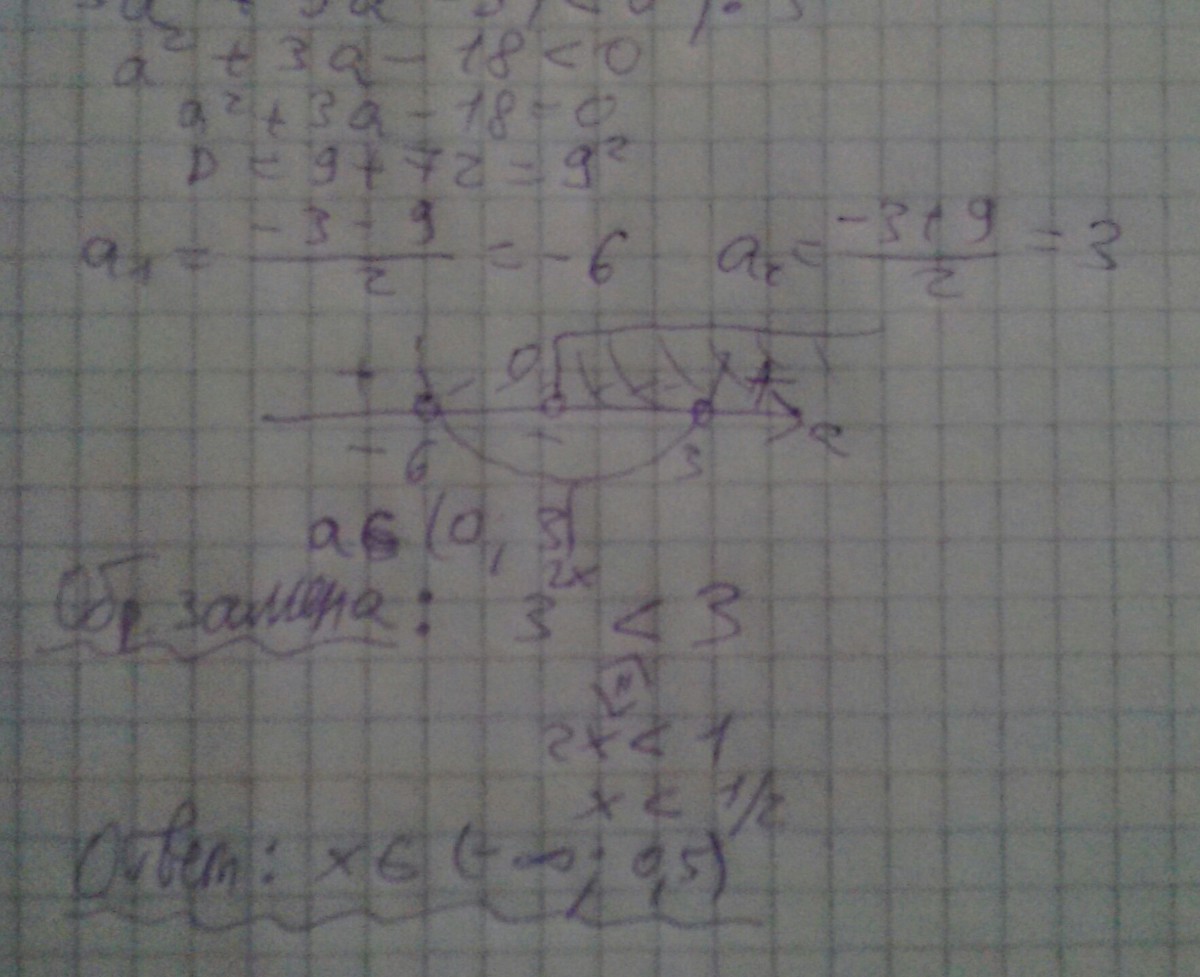 a² + 3a - 18 < 0
a² + 3a - 18 = 0
D = 9 + 72 = 9²
a₁ = (-3 - 9)/2 = -6 a₂ = (-3 + 9)/2 = 3
+ - 0 - +
-6 3 a
a ∈ (0; 3)
Обр замена: 3²ˣ < 3
2x < 1
x < 1/2
Ответ: x ∈ (-∞; 0,5)